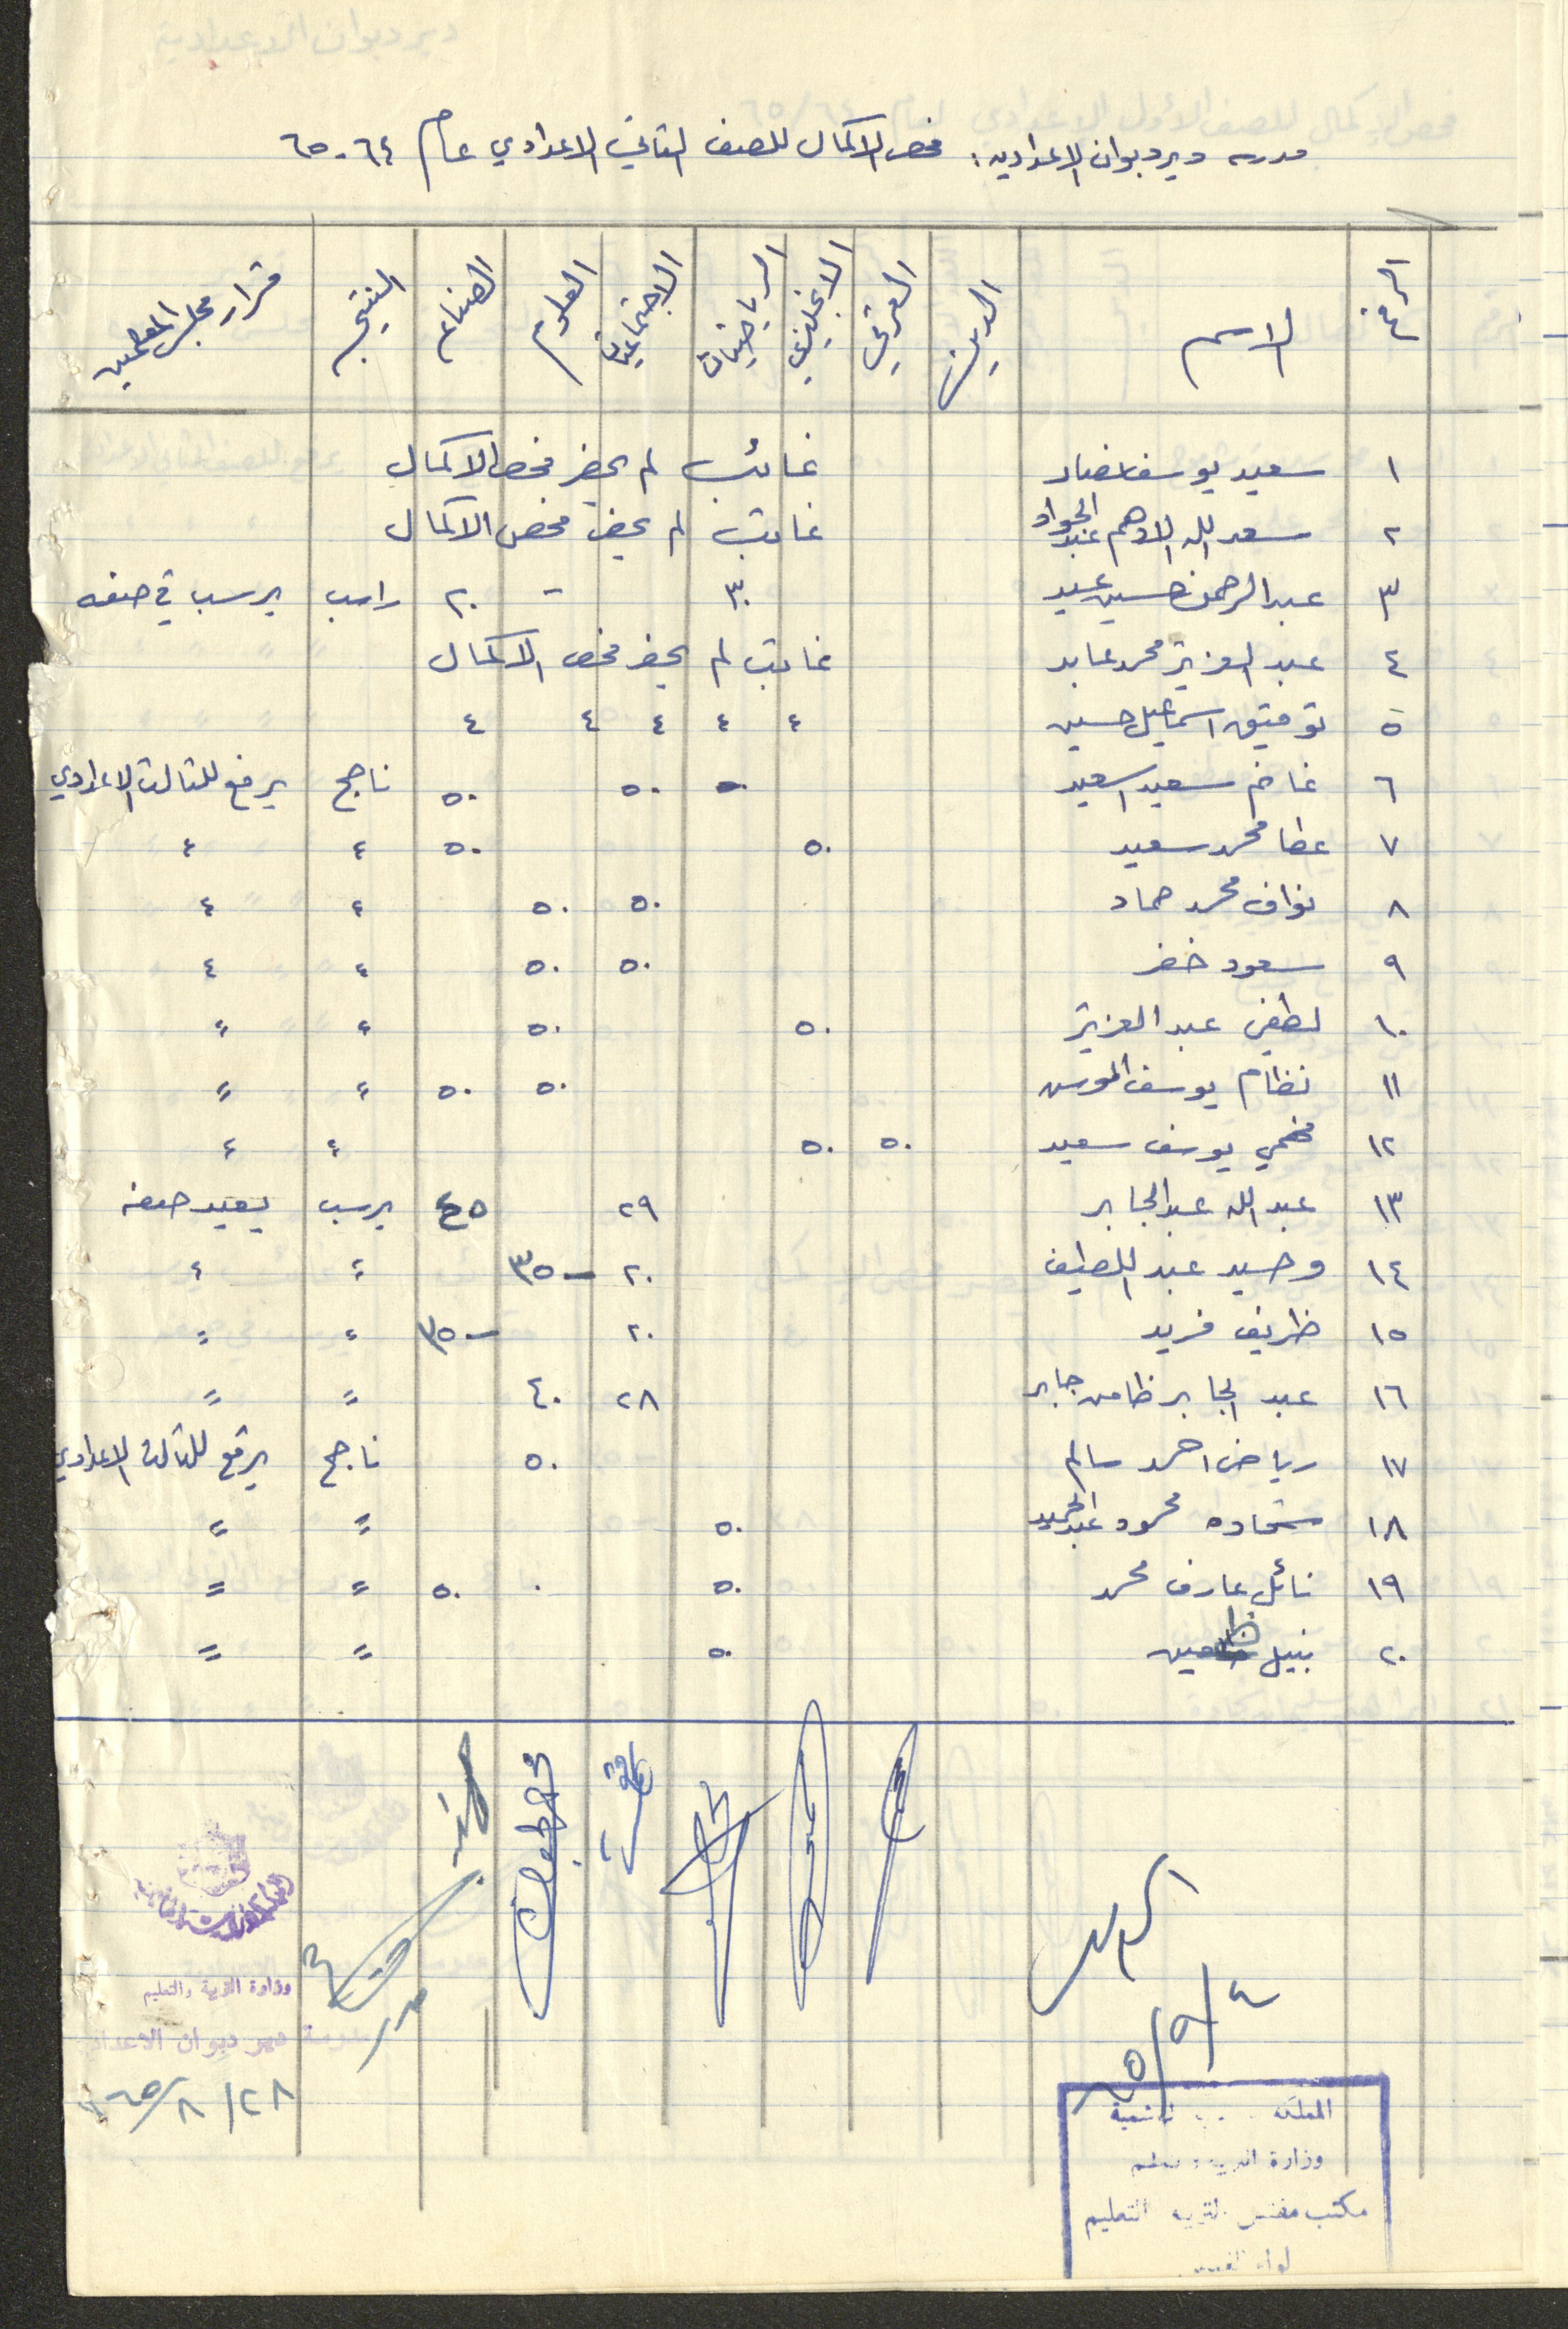 مدرسه ديرديوان الاعداديه: فحص الاكمال للصف الثاني الاعدادي عام ٦٤-٦٥
الرقم الاسم الدين العربي الانجليزي الرياضيات الاجتماعيات العلوم الصناعه النتيجه قرار مجلس المعلمين
١ سعيد يوسف غائب لم يحضر فحص الاكمال
٢ سعد الله الادهم عبد الجواد غائب لم يحضر فحص الاكمال
٣ عبد الرحمن حسين عبيد ٣٠ - ٢٠ راسب يرسب في صفه
٤ عبد العزيز محمد عابد غائب لم يحضر فحص الاكمال
٥ توفيق اسماعيل حسين ٤ ٤ ٤ ٤ ٤
٦ غانم سعيد اسعيد ٥٠ ٥٠ ٥٠ ناجح يرفع للثالث الاعدادي
٧ عطا محمد سعيد ٥٠ ٥٠ ٤ ٤
٨ نواف محمد حماد ٥٠ ٥٠ ٤ ٤
٩ سعود خضر ٥٠ ٥٠ ٤ ٤
١٠ لطفي عبد العزيز ٥٠ ٥٠ ٤ ٤
١١ نظام يوسف الموسى ٥٠ ٥٠ ٤ ٤
١٢ فهمي يوسف سعيد ٥٠ ٥٠ ٤ ٤
١٣ عبد الله عبد الجابر ٢٩ ٤٥ يرسب يعيد صفه
١٤ وحيد عبد اللطيف ٢٠ - ٣٥ ٤ ٤
١٥ ظريف فريد ٢٠ - ٣٥ ٤ ٤
١٦ عبد الجابر ظامن جابر ٢٨ ٤٠ = =
١٧ رياض احمد سالم ٥٠ ناجح يرفع للثالث الاعدادي
١٨ شحاده محمود عبد الحميد ٥٠ = =
١٩ نائل عارف محمد ٥٠ ٠ ٥٠ = =
٢٠ نبيل ٥٠ = =
وزارة التربية والتعليم
مدرسة دير ديوان الاعدادية
٢٨/٨/٦٥
٤/٩/٦٥
المملكة
وزارة التربية
مكتب مفتش التربية التعليم
لواء القدس